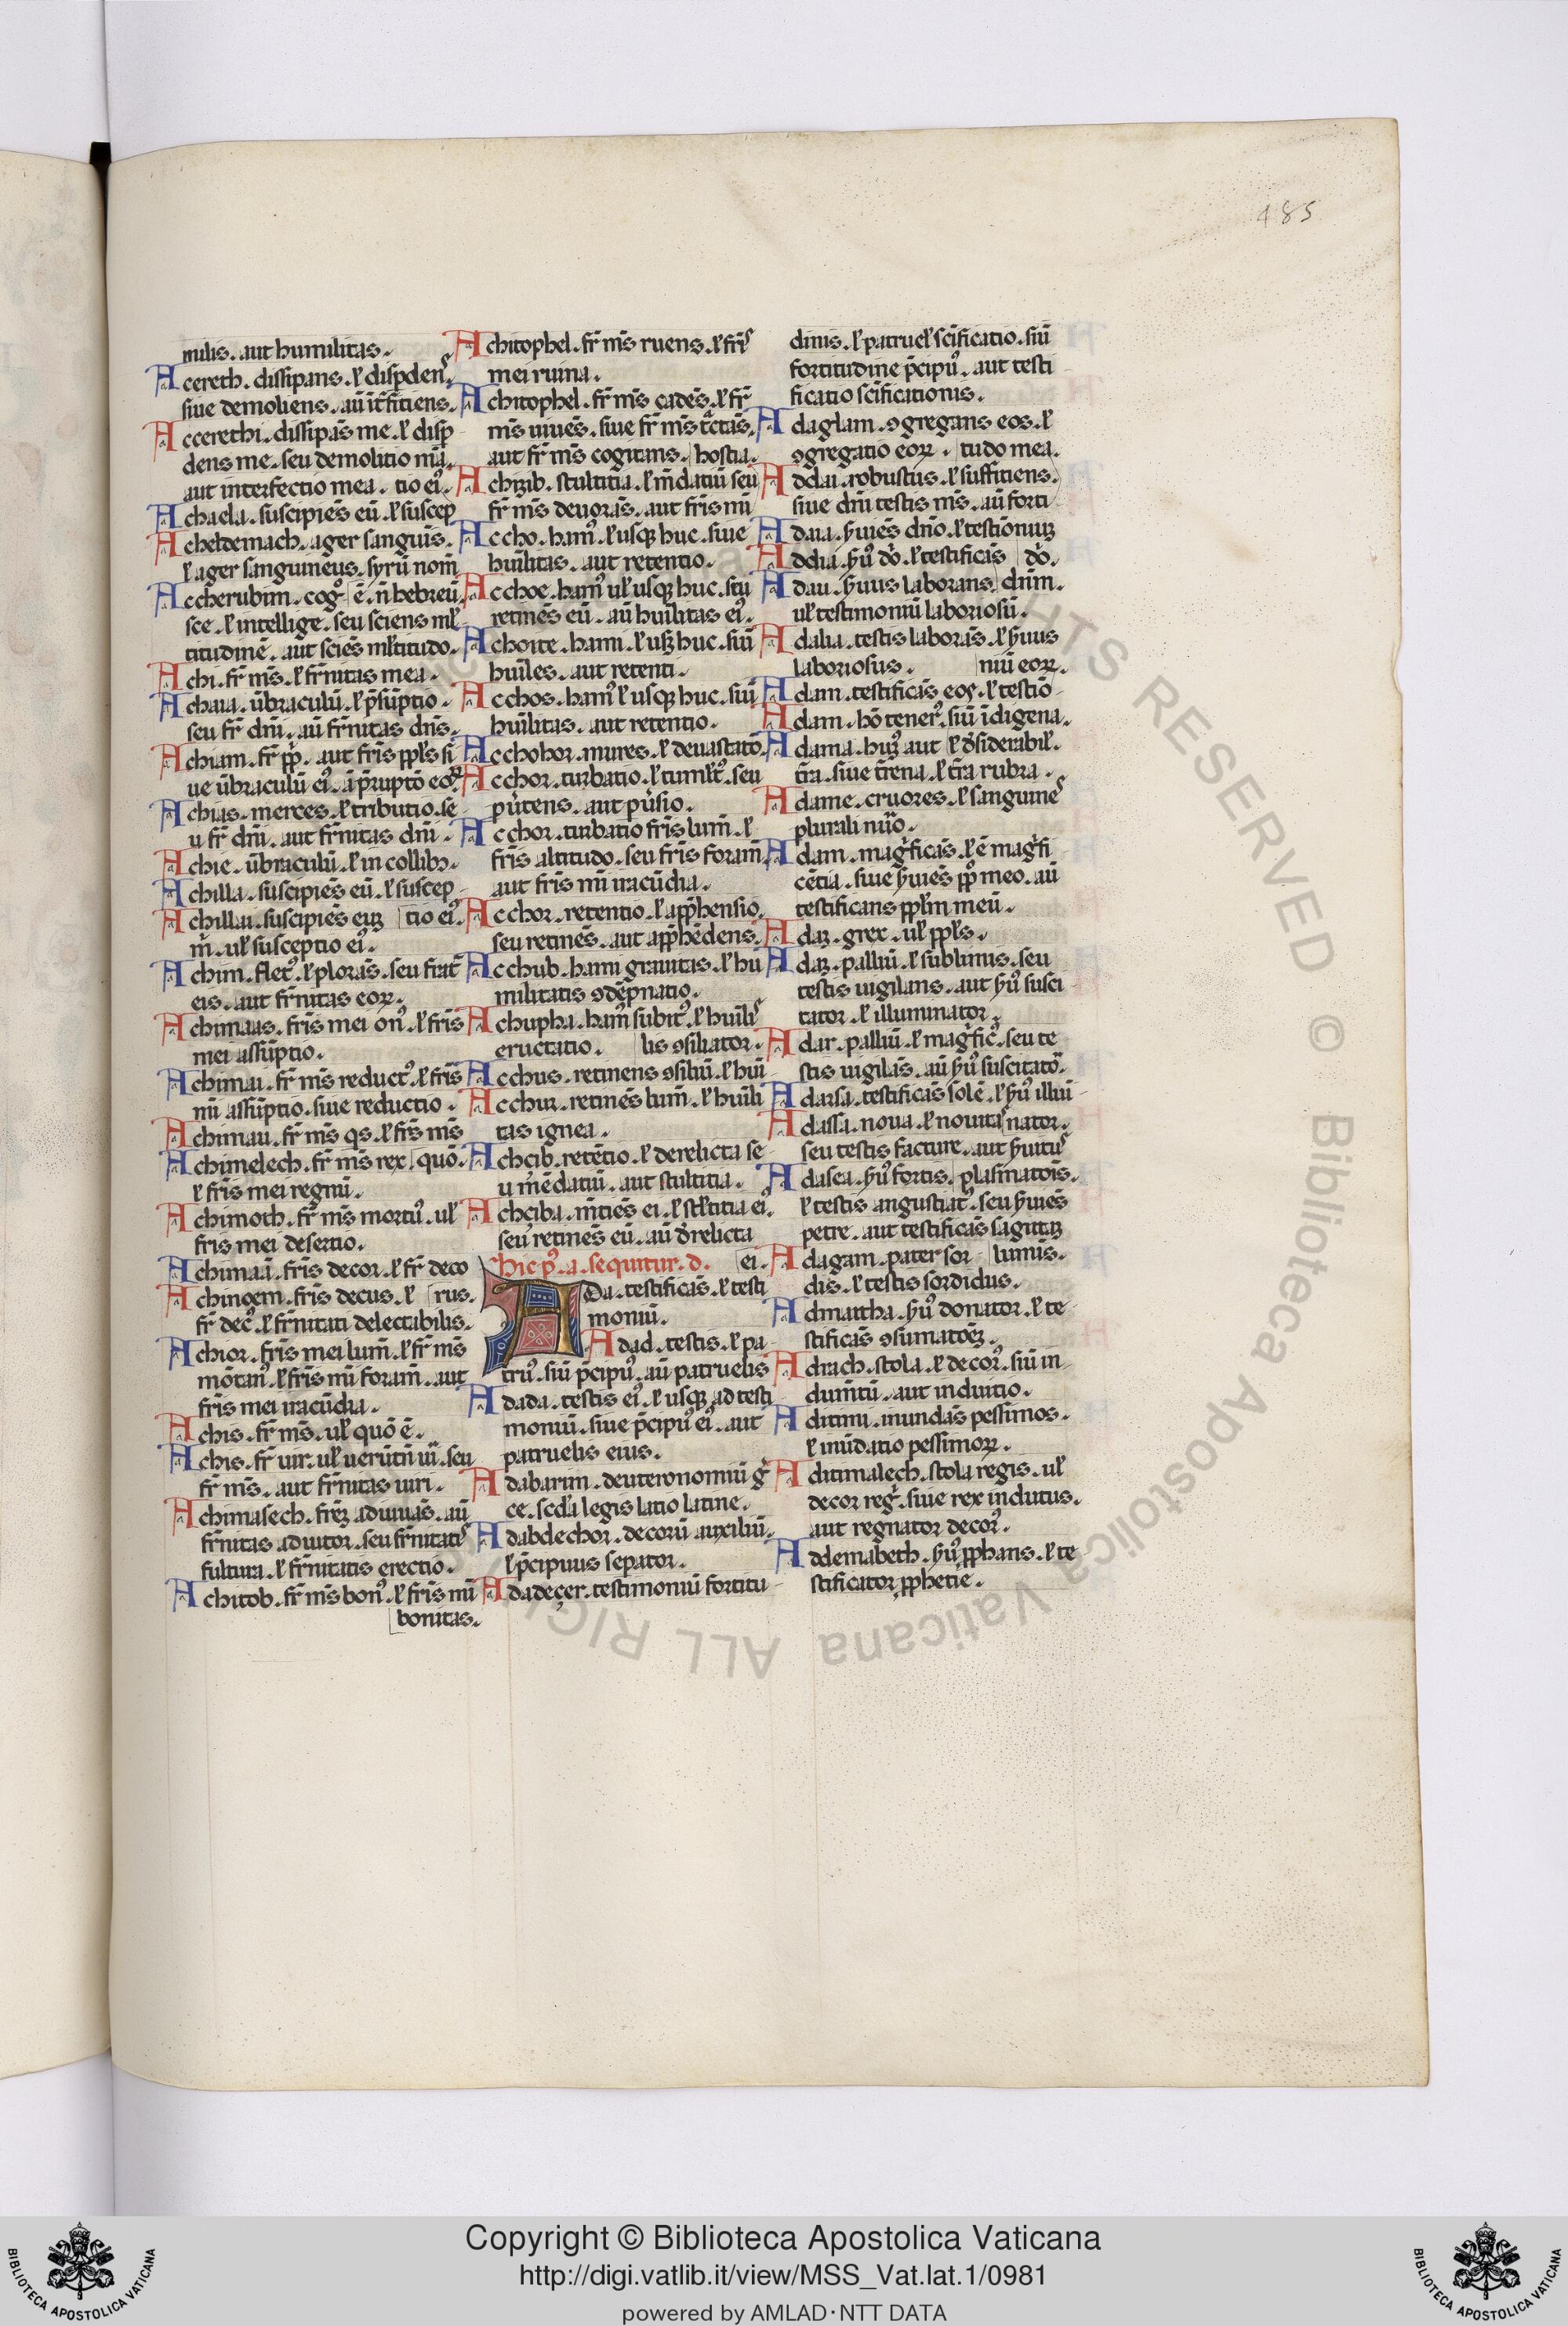 485
milis. aut humilitas.
Acereth. dissipans. ł dispdens̄.
siue demoliens. aū it̄ficiens.
Accerethi. dissipās me. ł disp
dens me. seu demolitio m̄a.
aut interfectio mea. tio ei᷒.
Achaela. suscipiēs eū. ł suscep
Acheldemach. ager sanguīs.
ł ager sanguineus. syrū nom̄
Accherubim. cog᷒ ē. n̄ hebreū
sce. ł intellige. seu sciens ml̄
titudinē. aut sciēs ml̄titudo.
Achi. fr̄ m̄s. ł fr̄nitas mea.
Achaia. ūbraculū. ł p̄sūptio.
seu fr̄ dn̄i. aū fr̄nitas dn̄s.
Achiam. fr̄ pp̄. aut fr̄is ppl̄s si
ue ūbraculū ei᷒. a p̄ruptō eoꝝ
Achias. merces. ł tributio. se
u fr̄ dn̄i. aut fr̄nitas dn̄i.
Achie. ūbraculū. ł in collibꝫ.
Achilla. suscipiēs eū. ł suscep
Achillai. suscipiēs euꝫ tio ei᷒.
m̄. ul̄ susceptio ei᷒.
Achim. flet᷒. ł plorās. seu frat̄
eis. aut fr̄nitas eoꝝ.
Achimaas. fr̄is mei on᷒. ł fr̄is
mei assūptio.
Achimai. fr̄ m̄s reduct᷒. ł fr̄is
mī assūptio. siue reductio.
Achimau. fr̄ m̄s q̄s. ł fr̄is m̄s
Achimelech. fr̄ m̄s rex quō.
ł fr̄is mei regnū.
Achimoth. fr̄ m̄s mortu᷒. ul̄
fris mei desertio.
Achimaā. fr̄is decor. ł fr̄ deco
Achinoem. fris decus. ł rus.
fr̄ dec᷒. ł fr̄nitati delectabilis.
Achior. fr̄is mei lum̄. ł fr̄ m̄s
mōtan᷒. ł fr̄is mī foram̄. aut
fr̄is mei iracūdia.
Achis. fr̄ m̄s. ul̄ quō ē.
Achis. fr̄ uir. ul̄ uerūtn̄ uī. seu
fr̄ m̄s. aut fr̄nitas uiri.
Achimasech. fr̄eꝫ adiuuās. aū
fr̄nitas adiutor. seu fr̄nitatis
fultura. ł fr̄nitatis erectio.
Achitob. fr̄ m̄s bon᷒. ł fr̄is mī
bonitas.
Achitophel. fr̄ m̄s ruens. ł fr̄is
mei ruina.
Achitophel. fr̄ m̄s cadēs. ł fr̄
m̄s uiuēs. siue fr̄ m̄s tc̄tās.
aut fr̄ m̄s cogitans. hostia.
Achizib. stultitia. ł m̄datiū seu
fr̄ m̄s deuorās. aut fr̄is mī
Accho. ham᷒. ł usqꝫ huc. siue
huīlitas. aut retentio.
Acchoe. ham᷒ ul̄ usqꝫ huc. seu
retinēs eū. aū huīlitas ei᷒.
Achoite. hami. ł usqꝫ huc. siū
huīles. aut retenti.
Acchos. ham᷒ ł usqꝫ huc. siū
huīlitas. aut retentio.
Acchobor. mures. ł deuastatō.
Acchor. turbatio. ł tumlt᷒. seu
pūtens. aut pūsio.
Acchor. turbatio fr̄is lum̄. ł
fr̄is altitudo. seu fr̄is foram̄.
aut fr̄is mī iracūdia.
Acchor. retentio. ł app̄hensio.
seu retinēs. aut app̄hēdens.
Acchub. hami grauitas. ł hu
militatis ꝯdēpnatio.
Achupha. ham᷒ subit᷒. ł huīlis
eructatio. lis ꝯsiliator.
Acchus. retinens ꝯsiliū. ł huī
Acchur. retinēs lum̄. ł huīli
tas ignea.
Achcib. retētio. ł derelicta se
u mēdatiū. aut stultitia.
Achciba. m̄tiēs ei. ł stl̄titia ei᷒.
seu retinēs eū. aū d̄relicta
Hic p᷒. a. sequitur. d. ei.
ADa. testificās. ł testi
moniū.
Adad. testis. ł pa
tru᷒. siū p̄cipu᷒. aū patruelis
Adada. testis ei᷒. ł usqꝫ ad testi
moniū. siue p̄cipu᷒ ei᷒. aut
patruelis eius.
Adabarim. deuteronomiū gr̄
ce. scd̄a legis latio latine.
Adabdechor. decorū auxiliū.
ł p̄cipuus sepator.
Adadeçer. testimoniū fortitu
dinis. ł patruel̄ sc̄ificatio. siū
fortitudine p̄cipu᷒. aut testi
ficatio sc̄ificationis.
Adaglam. ꝯgregans eos. ł
ꝯgregatio eoꝝ. tudo mea.
Addai. robustus. ł suffitiens.
siue dn̄i testis m̄s. aū forti
Adaia. s̄uiēs dn̄o. ł testiōniuꝫ
Addia. s̄u᷒ dō. ł testificās dō.
Adau. s̄uus laborans dn̄m.
ul̄ testimoniū laboriosū.
Adalia. testis laborās. ł s̄uus
laboriosus. niū eoꝝ.
Adam. testificās eos. ł testiō
Adam. hō tener᷒. siū īdigena.
Adama. hu᷒ aut ł d̄siderabil̄.
t̄ra. siue t̄rena. ł t̄ra rubra.
Adame. cruores. ł sanguines
plurali nūo.
Adam. magn̄ficās. ł ē magn̄fi
cētia. siue s̄uiēs pp̄o meo. aū
testificans ppl̄m meū.
Adaꝫ. grex. ul̄ ppl̄s.
Adaꝫ. palliū. ł sublimis. seu
testis uigilans. aut s̄u᷒ susci
tator. ł illuminator.
Adar. palliū. ł magn̄fic᷒. seu te
stis uigilās. aū s̄u᷒ suscitatō.
Adarsa. testificās solē. ł s̄u᷒ illūi
Adassa. noua. ł nouitas nator.
seu testis facture. aut s̄uitus
Adasea. s̄u᷒ fortis. plasmatoīs.
ł testis angustiat᷒. seu s̄uiēs
petre. aut testificās sagittaꝫ
Adagam. pater sor lumīs.
dis. ł testis sordidus.
Admattha. s̄u᷒ donator. ł te
stificās ꝯsumatōeꝫ.
Adrach. stola. ł decor᷒. siū in
dum̄tū. aut induitio.
Aditimi. inundās pessimos.
ł inūdatio pessimoꝝ.
Aditimalech. stola regis. ul̄
decor reg᷒. siue rex indutus.
aut regnator decor᷒.
Addemabeth. s̄u᷒ pp̄hans. ł te
stificator pp̄hetie.
Copyright © Biblioteca Apostolica Vaticana
http://digi.vatlib.it/view/MSS_Vat.lat.1/0981
powered by AMLAD·NTT DATA
BIBLIOTECA APOSTOLICA VATICANA
BIBLIOTECA APOSTOLICA VATICANA